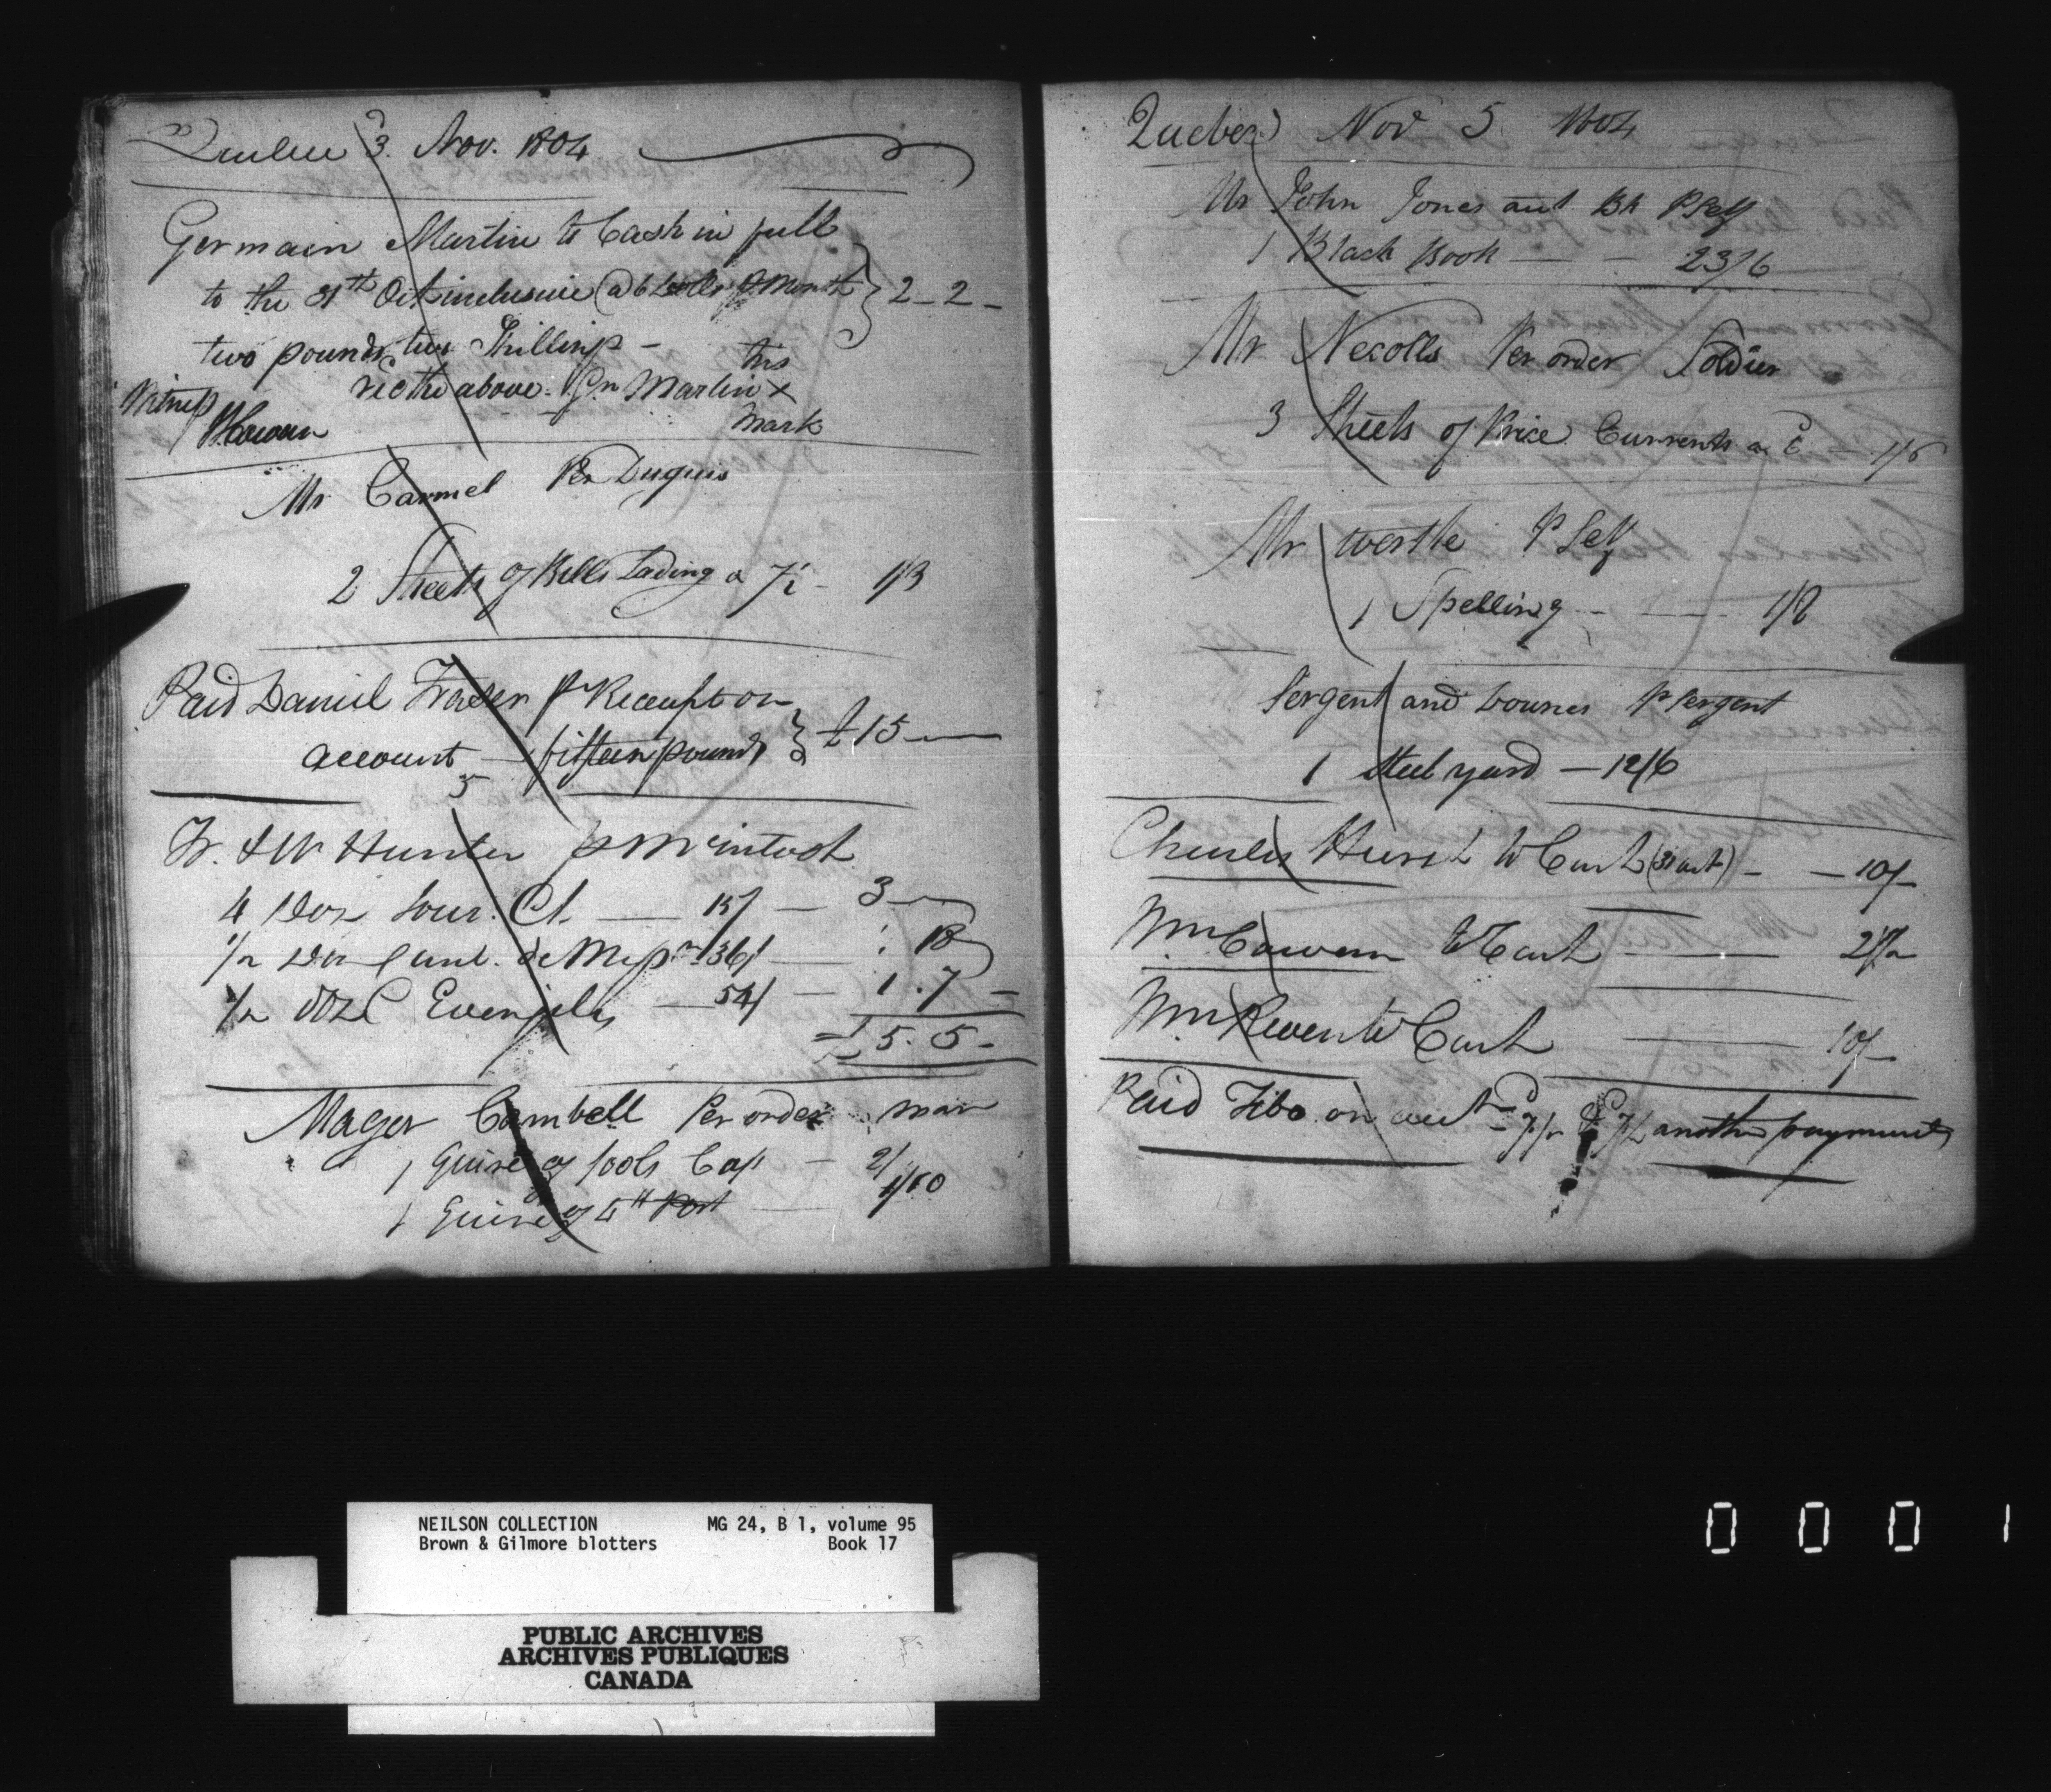 Quebec 3. Nov. 1804
Germain Martin to Cash in full
to the 31th Oct inclusive @ 6 dolls P Month } 2 - 2 -
two pounds two Shillings -
his
rec the above. Gn Martin x
mark
Witness
WCowan
Mr Carmel Per Duquis
2 Sheets of Bills Lading a 7½ - 1/3
Paid Daniel Fraser Pr Receipt on
account - fifteen pounds } £15 —
5
Fr. & W Hunter p McIntosh
4 Doz Cour. Ct. — 15/ — 3 —
1/2 Doz Cant. de Miss. - 36/ — : 18
1/2 DOZ Evengiles — 54/ — 1 . 7 -
£ 5. 5 -
Mager Cambell Per order man
1 Quire of fools Cap - 2/
1 Quire of 4th Post — 1/10
Quebec Nov 5 1804
Mr John Jones aut Bk P Self
1 Black Book — - 23/6
Mr Necolls Per order Soldier
3 Sheets of Price Currents a 6 1/6
Mr westle P Self
1 Spelling - — 1/2
Sergent and Lounes P Sergent
1 Steelyard — 12/6
Charles Hurst to Cash (31 oct) - — 10/-
Wm Cowan to Cash — 2/½
Wm Keven to Cash — 10/-
Paid Tibo on acct 7/½ & 7/½ another payment
NEILSON COLLECTION MG 24, B 1, volume 95
Brown & Gilmore blotters Book 17
PUBLIC ARCHIVES
ARCHIVES PUBLIQUES
CANADA
0 0 0 1